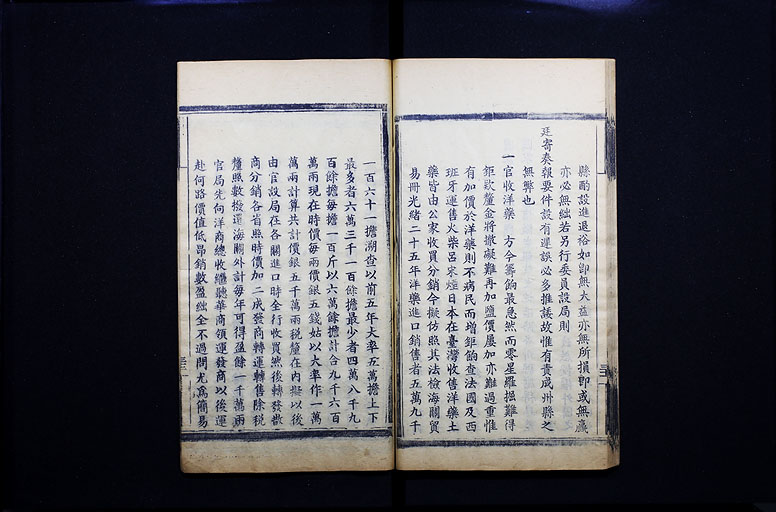 縣酌設進退裕如卽無大益亦無所損卽或無贏
亦必無絀若另行委員設局則
廷寄奏報要件設有遲誤必多推諉故惟有責成州縣之
無弊也
一官收洋藥　方今籌餉最急然而零星羅掘難得
鉅款釐金將撤礙難再加鹽價屢加亦難過重惟
有加價於洋藥則不病民而增鉅餉查法國及西
班牙運售火柴呂宋煙日本在臺灣收售洋藥土
藥皆由公家收買分銷今擬仿照其法檢海關貿
易冊光緒二十五年洋藥進口銷售者五萬九千
一百六十一擔溯查以前五年大率五萬擔上下
最多者六萬三千一百餘擔最少者四萬八千九
百餘擔每擔一百斤以六萬餘擔計合九千六百
萬兩現在時價每兩價銀五錢姑以大率作一萬
萬兩計算共計價銀五千萬兩稅釐在內擬以後
由官設局在各關進口時全行收買然後轉發散
商分銷各省照時價加二成發商轉運轉售除稅
釐照數撥還海關外計每年可得盈餘一千萬兩
官局先向洋商總收繼聽華商領運發商以後運
赴何路價值低昂銷數盈絀全不過問尤爲簡易